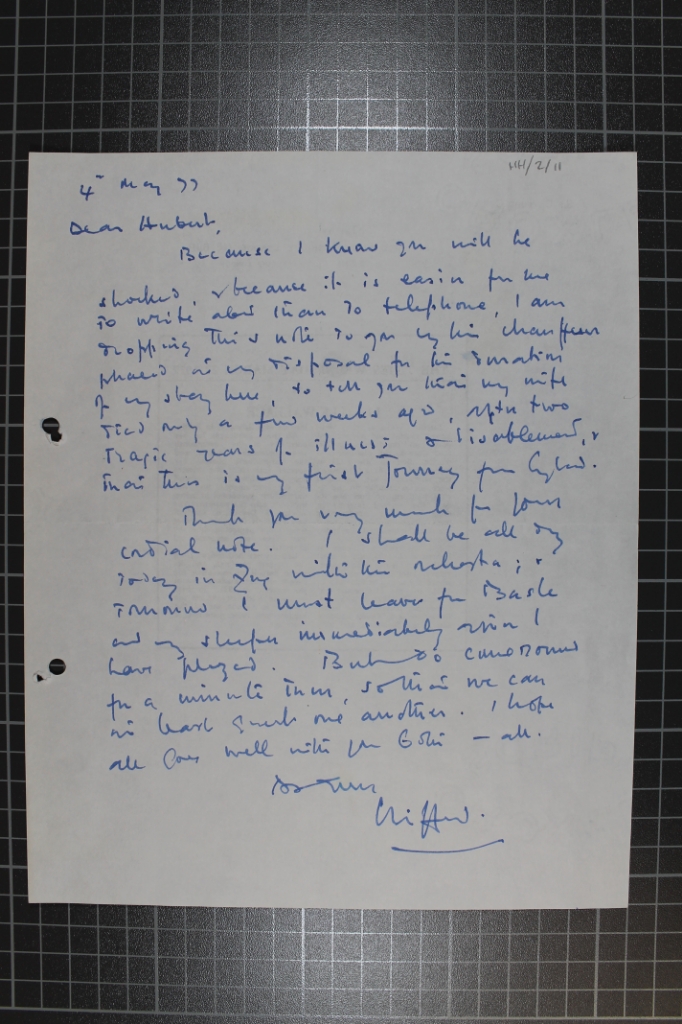 HH/2/11
4th May 77
Dear Hubert,
Because I know you will be
shocked, & because it is easier for me
to write also than to telephone, I am
dropping this note to you by the chauffeur
placed at my disposal for the duration
of my stay here, to tell you that my wife
died only a few weeks ago, after two
tragic years of illness & disablement, &
that this is my first journey from England.
Thank you very much for your
cordial note. I shall be all day
today in Zug with the orchestra; &
tomorrow I must leave for Basle
and my sleeper immediately after I
have played. But do come round
for a minute then, so that we can
at least greet one another. I hope
all goes well with you both – all.
As ever
Clifford.